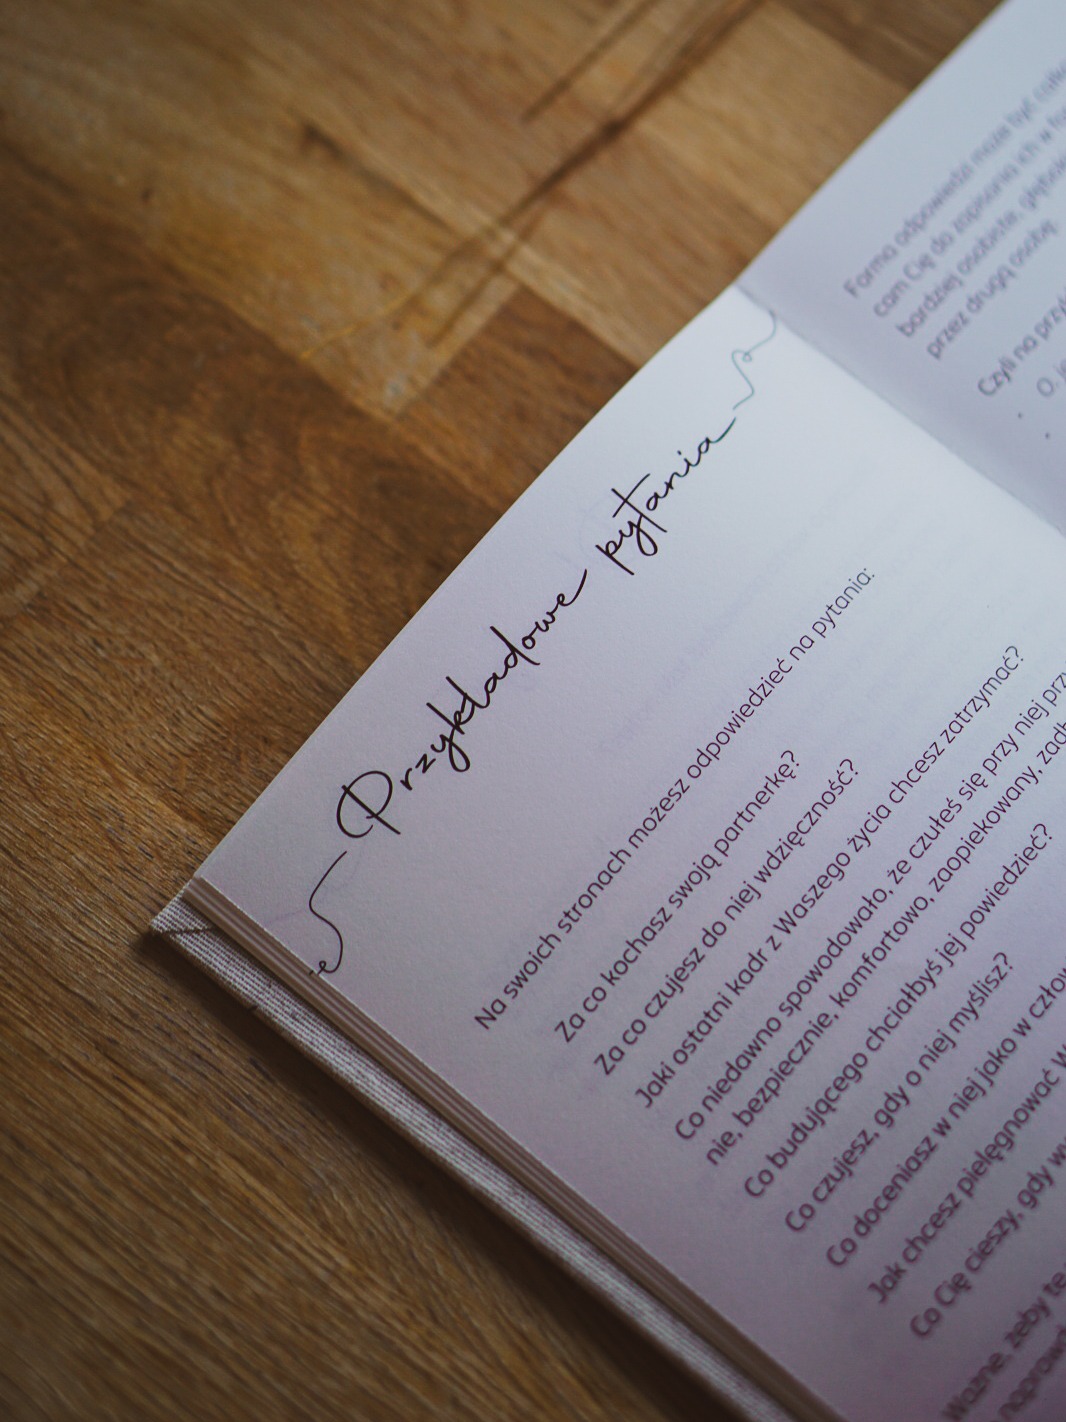 Forma odpowiedzi może być
cam Cię do zapisania ich w
bardziej osobiste, głębokie
przez drugą osobę.
Czyli na
Przykładowe pytania
Na swoich stronach możesz odpowiedzieć na pytania:
Za co kochasz swoją partnerkę?
Za co czujesz do niej wdzięczność?
Jaki ostatni kadr z Waszego życia chcesz zatrzymać?
Co niedawno spowodowało, że czułeś się przy niej
nie, bezpiecznie, komfortowo, zaopiekowany,
Co budującego chciałbyś jej powiedzieć?
Co czujesz, gdy o niej myślisz?
Co doceniasz w niej jako w
Jak chcesz pielęgnować
Co Cię cieszy, gdy
Ważne, żeby te